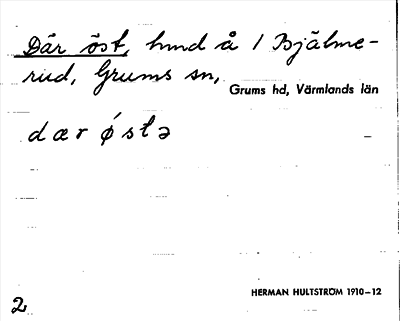 Där öst, hmd å 1 Bjälme-
rud, Grums sn,
Grums hd, Värmlands län
dær østə
2
HERMAN HULTSTRÖM 1910-12